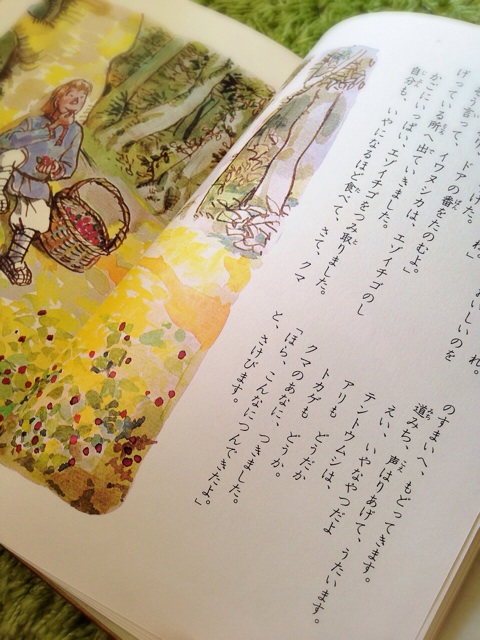 おいしいのを
れ。
ドアの番をたのむよ。」
そう言って、イワヌシカは、エゾイチゴのし
げっている所へ出ていきました。
かごにいっぱい、エゾイチゴをつみ取りました。
自分も、いやになるほど食べて、さて、クマ
のすまいへ、もどってきます。
道みち、声はりあげて、うたいます。
えい、いやなやつだよ
テントウムシは、
アリも どうだか
トカゲも どうか。
クマのあなに、つきました。
「ほら、こんなにつんできたよ。」
と、さけびます。